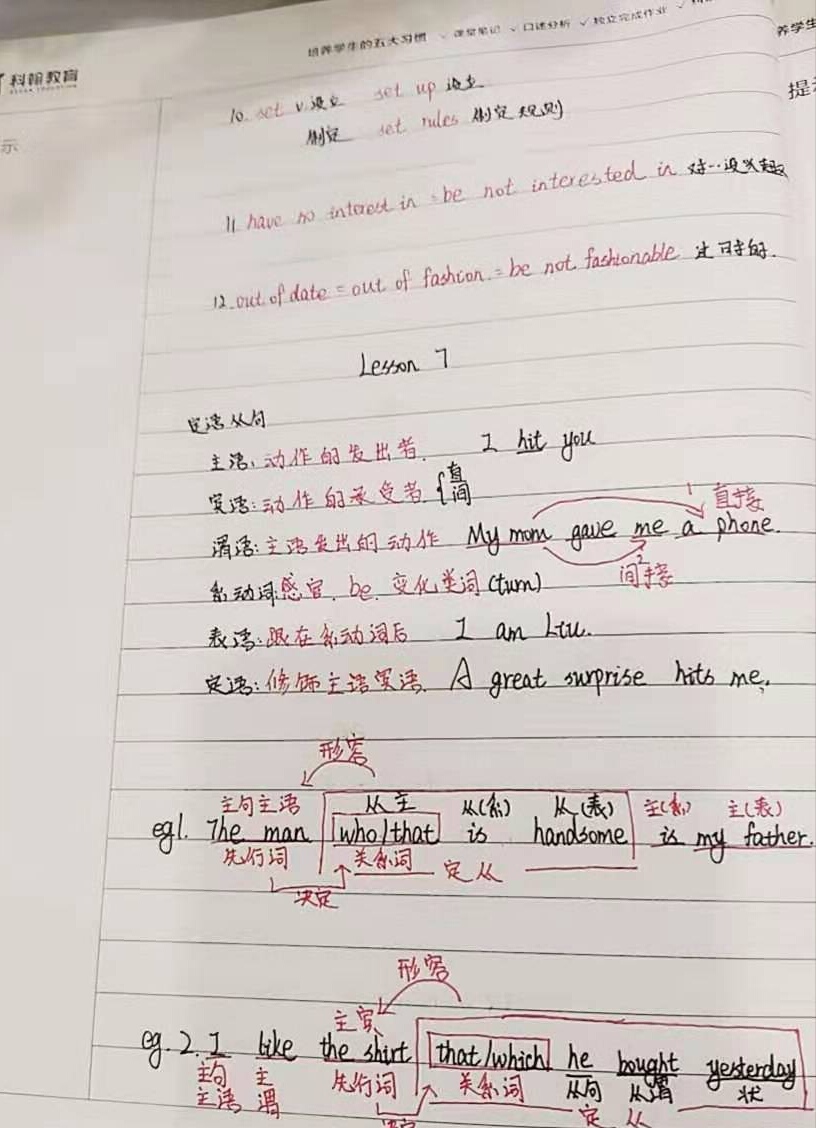 培养学生的五大习惯 ✓ 课堂笔记 ✓ 口述分析 ✓ 独立完成作业 ✓
养学生
科翰教育
提示
示
10. set v.设立 set up 设立
制定 set rules 制定规则
11. have no interest in = be not interested in 对…没兴趣
12. out of date = out of fashion. = be not fashionable 过时的.
Lesson 7
定语从句
主语: 动作的发出者. I hit you
宾语: 动作的承受者 { 直 间
1 直接
谓语: 主语发出的动作 My mom gave me a phone.
2 间接
系动词: 感官. be. 变化类词 (turn)
表语: 跟在系动词后 I am Liu.
定语: 修饰主语宾语. A great surprise hits me.
形容
主句主语 从主 从(系) 从(表) 主(系) 主(表)
eg1. The man who/that is handsome is my father.
先行词 关系词 定从
决定
形容
主宾
eg. 2. I like the shirt that/which he bought yesterday
主句 主 先行词 关系词 从句 从谓 状
主语 谓 定 从
决定